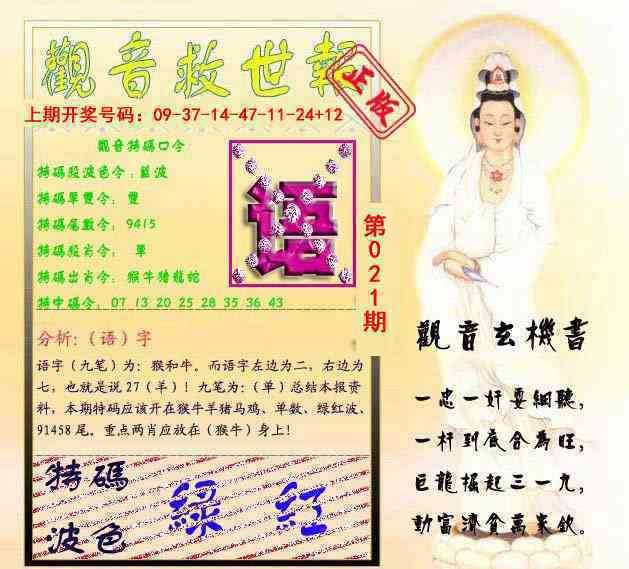 觀音救世報
正版
上期开奖号码：09-37-14-47-11-24+12
觀音特碼口令
特碼段波色令：藍波
特碼單雙令：雙
特碼尾數令：9415
特碼段肖令：單
特碼出肖令：猴牛猪龍蛇
特中碼令：07 13 20 25 28 35 36 43
语
第021期
分析：（语）字
语字（九笔）为：猴和牛。而语字左边为二，右边为
七，也就是说27（羊）！九笔为：（单）总结本报资
料，本期特码应该开在猴牛羊猪马鸡、单数、绿红波、
91458尾。重点两肖应放在（猴牛）身上！
特碼
波色
綠 紅
觀音玄機書
一忠一奸要細聽，
一杆到底合為旺，
巨龍掘起三一九，
動富濟貧萬家欽。